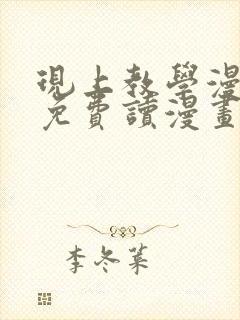 現上教學漫
免費讀漫畫
李冬葉